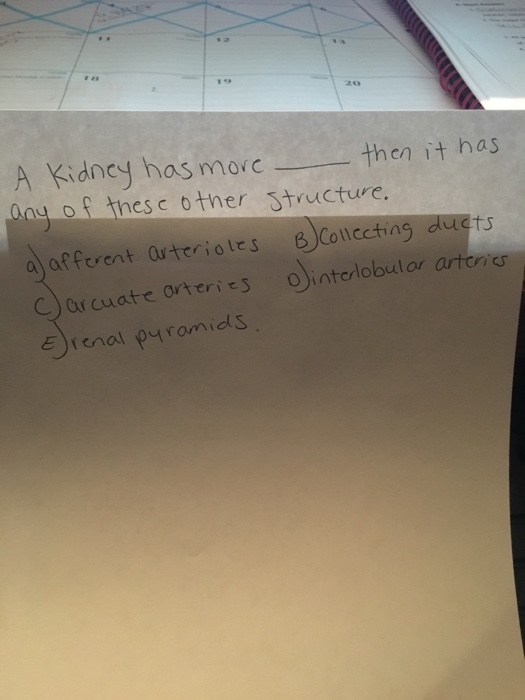 11 12 13
18 19 20
A Kidney has more ______ then it has
any of these other structure.
a) afferent arterioles B) Collecting ducts
C) arcuate arteries D) interlobular arteries
E) renal pyramids.